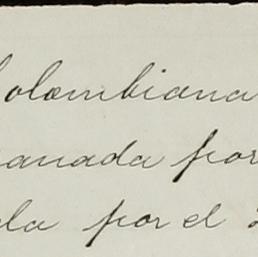 Colombiana
anada por
la por el